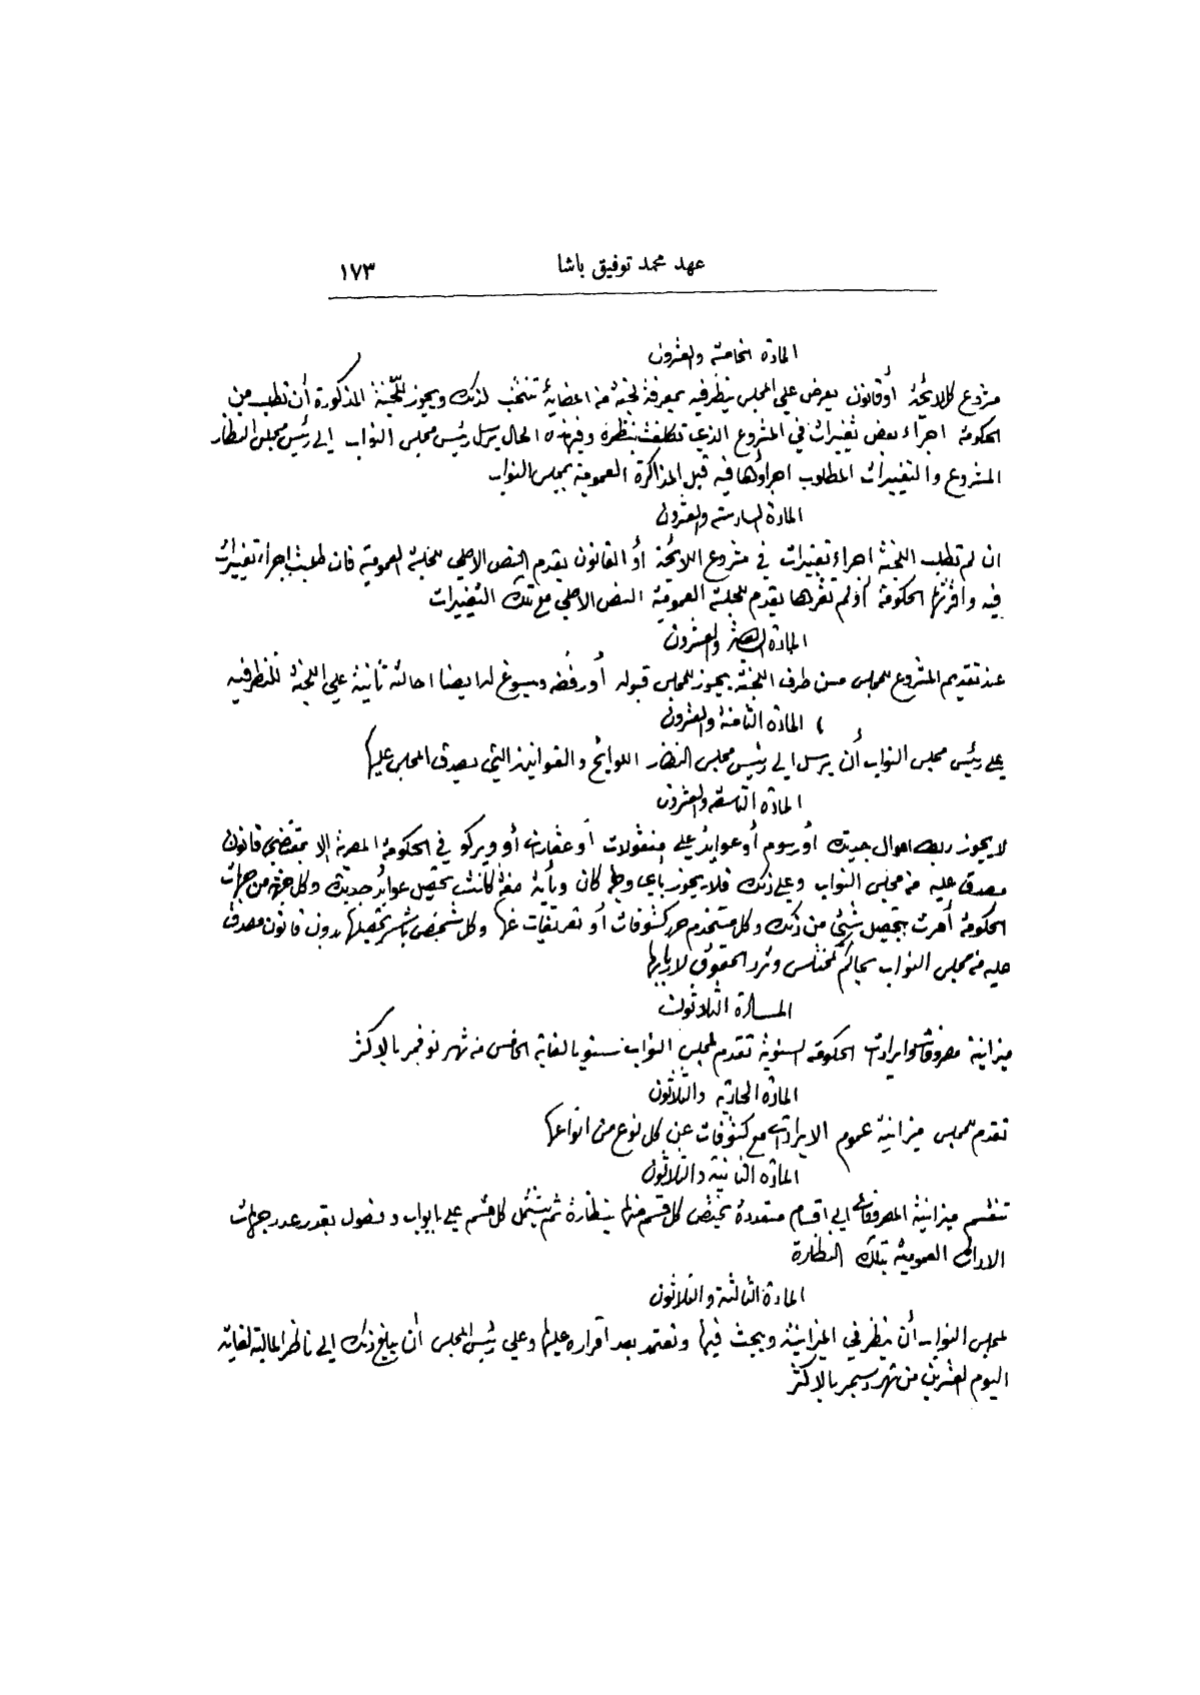 عهد محمد توفيق باشا ١٧٣
المادة الخامسة والعشرون
مشروع كل لايحة أو قانون يعرض على المجلس ينظر فيه بمعرفة لجنة من اعضاية تنتخب لذلك ويجوز للجنة المذكورة أن تطلب من
الحكومة اجراء بعض تغييرات في المشروع الذي تكلفت بنظره وفي هذه الحال يرسل رئيس مجلس النواب الى رئيس مجلس النظار
المشروع والتغييرات المطلوب اجراؤها فيه قبل المذاكرة العمومية بمجلس النواب
المادة السادسة والعشرون
ان لم تطلب اللجنة اجراء تغييرات في مشروع اللائحة أو القانون يقدم النص الاصلي للجلسة العمومية فان طلبت اجراء تغييرات
فيه وأقرتها الحكومة أو لم تقرها يقدم للجلسة العمومية النص الاصلي مع تلك التغييرات
المادة والعشرون
عند تقديم المشروع للمجلس من طرف اللجنة يجوز للمجلس قبوله أو رفضه ويسوغ له ايضا احالته ثانية على اللجنة للنظر فيه
المادة الثامنة والعشرون
على رئيس مجلس النواب أن يرسل الى رئيس مجلس النظار اللوايح والقوانين التي يصدق المجلس عليها
المادة التاسعة والعشرون
لا يجوز ربط اموال جديدة أو رسوم أو عوايد على منقولات أو عقارات أو ويركو في الحكومة المصرية إلا بمقتضى قانون
مصدق عليه من مجلس النواب وعلى ذلك فلا يجوز بأي وجه كان وبأية صفة كانت تحصيل عوايد جديدة وكل جهة من جهات
الحكومة أمرت بتحصيل شيئ من ذلك وكل مستخدم حرر كشوفات أو تعريفات عنها وكل شخص باشر تحصيلها بدون قانون مصدق
عليه من مجلس النواب يحاكم كمختلس وترد الحقوق لاربابها
المادة الثلاثون
ميزانية مصروفات وايرادات الحكومة السنوية تقدم لمجلس النواب سنويا لغاية الخامس من شهر نوفمبر بالاكثر
المادة الحادية والثلاثون
تقدم للمجلس ميزانية عموم الايرادات مع كشوفات عن كل نوع من انواعها
المادة الثانية والثلاثون
تنقسم ميزانية المصروفات الى اقسام متعددة يختص كل قسم منها بنظارة ثم يشتمل كل قسم على ابواب وفصول بقدر عدد جهات
الادارة العمومية بتلك النظارة
المادة الثالثة والثلاثون
لمجلس النواب أن ينظر في الميزانية ويبحث فيها وتعتمد بعد اقراره عليها وعلى رئيس المجلس أن يبلغ ذلك الى ناظر المالية لغاية
اليوم العشرين من شهر ديسمبر بالاكثر